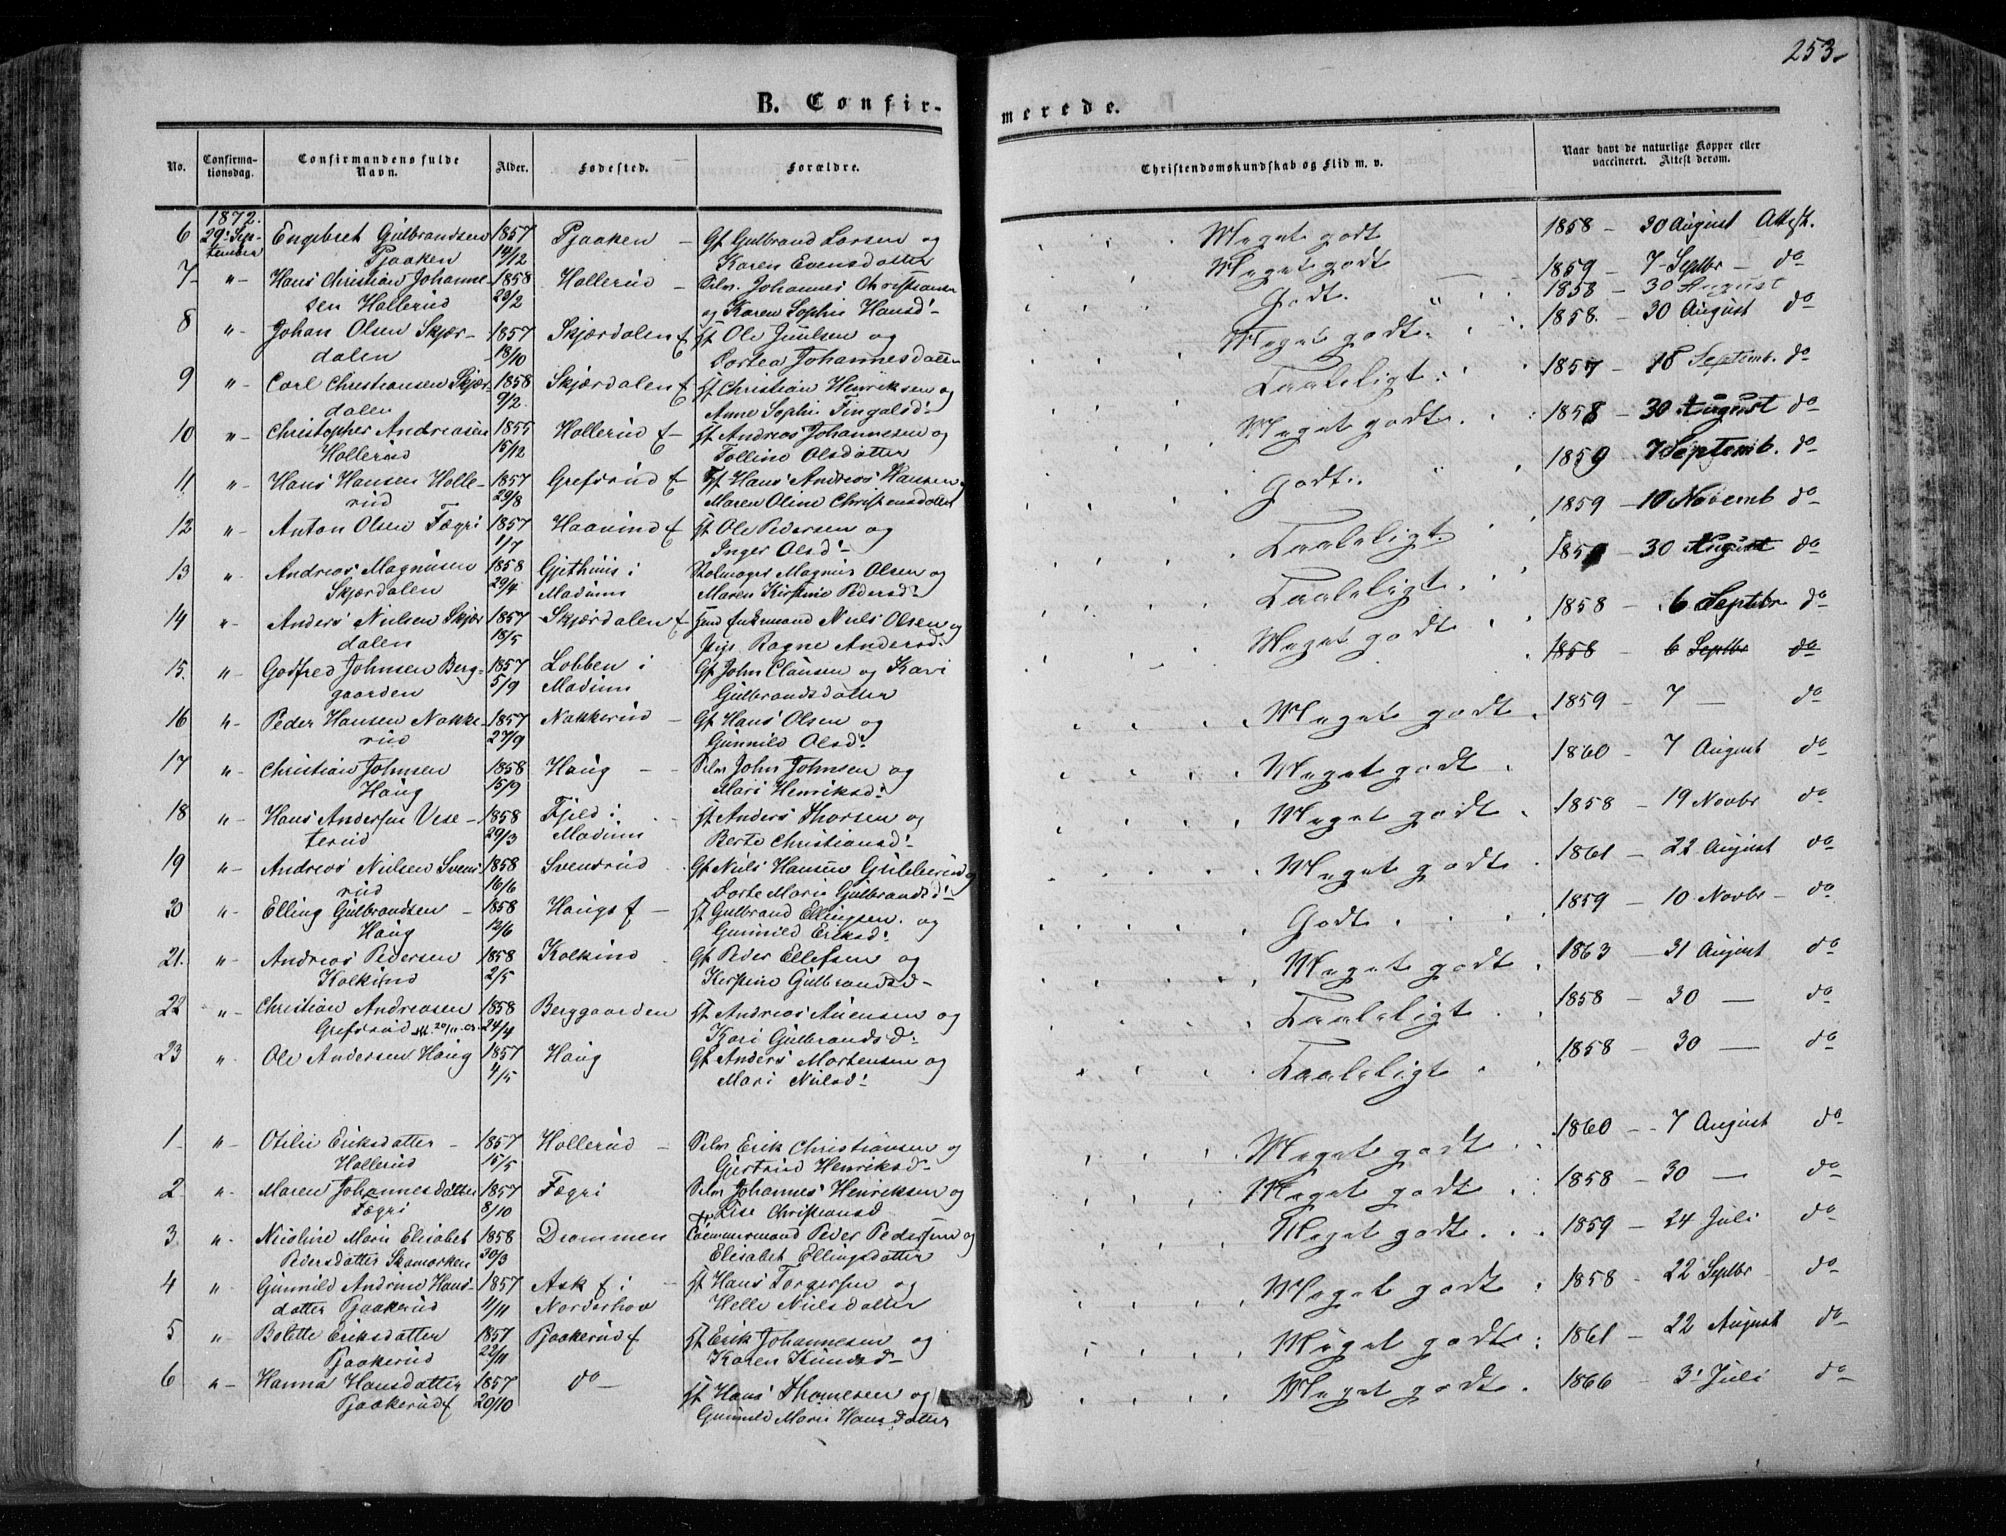 253.
B. Confir-
merede.
No.
Confirma-
tionsdag.
Confirmandens fulde
Navn.
Alder.
Fødested.
Forældre.
Christendomskundskab og Flid m. v.
Naar havt de naturlige Kopper eller
vaccineret. Attest derom.
1872.
6 29' Sep- Engebret Gulbrandsen 1857 Pjaaken – Gf Gulbrand Larsen og Meget godt 1858 – 30 August Attest.
tember Pjaaken 14/12 Karen Evensdatter
7 " Hans Christian Johanne- 1858 Hollerud – Selv. Johannes Christiansen Meget godt 1859 – 7 Septbr – do
sen Hollerud 23/2 og Karen Sophie Hansd: 1858 – 30 August
8 " Johan Olsen Skjær- 1857 Skjærdalen f Ole Juulsen og Godt. 1858. – 30 August do
dalen 18/10 Dortea Johannesdatter Meget godt
9 " Carl Christiansen Skjær- 1858 Skjærdalen f Christian Henriksen og Taaleligt 1857 – 18 Septemb. do
dalen 9/2 Anne Sophie Fingalsd:
10 " Christopher Andreasen 1855 Hollerud f – Andreas Johannesen og Meget godt 1858 – 30 August do
Hollerud 15/12 Olsdatter
11 " Hans Hansen Holle- 1857 Grefsrud f Hans Andreas Hansen Godt. 1859 7 Septemb. do
rud 29/8 Maren Oline Christensdatter
12 " Anton Olsen Fægri 1857 Haavind f Ole Pedersen og Taaleligt 1859 – 10 Novemb do
1/7 Inger Olsd:
13 " Andreas Magnusen 1858 Gjethuus i Magnus Olsen og Taaleligt – 30 August do
Skjærdalen 29/4 Modum Maren Kirstine Pedersd:
14 " Anders Nielsen Skjær- 1857 Skjærdalen f Niels Olsen og Meget godt 1858 – 6 Septbr do
dalen 18/5 Ragne Andersd:
1858 6 Septbr do
15. " Godfred Johnsen Berg- 1857 Lobben i Gf John Clausen og Kari Meget godt 1859 – 7 – do
gaarden 5/9 Modum Gulbrandsdatter
16 " Peder Hansen Nakke- 1857 Nakkerud – Gf Hans Olsen og Meget godt 1860 – 7 August do
rud 27/9 Gunnild Olsd:
17 " Christian Johnsen 1858 Haug – Selv John Johnsen og Meget godt 1858 – 19 Novbr do
Haug 15/9 Mari Henriksd:
18 " Hans Andersen Vese- 1858 Fjeld i Anders Thorsen og Meget godt 1861 – 22 August do
terud 29/3 Modum Berte Christiansd:
19 " Andreas Nielsen Svens- 1858 Svensrud Gf Niels Hansen Gubberud og Godt 1859 – 10 Novbr – do
rud 16/6 Dorte Marie Gulbrandsd:
20 " Elling Gulbrandsen 1858 Haugs f – Gulbrand Ellingsen og Meget godt 1863 – 31 August do
Haug 12/6 Gunnild Eriksd:
21. " Andreas Pedersen 1858 Kolkind Gf Peder Ellefsen og Taaleligt 1858 – 30 – do
Kolkind 2/5 Kirstine Gulbrandsd –
22 " Christian Andreasen 1858 Berggaarden Andreas og Taaleligt 1858 – 30 – do
Grefsrud 24/4 Kari Gulbrandsd:
23 " Ole Andersen Haug 1857 Haug Gf Anders Mortensen og
4/5 Mari Nielsd:
1 " Otilie Eriksdatter – 1857 Hollerud – Selv Erik Christiansen og Meget godt 1860 – 7 August do
Hollerud 15/5 Gjertrud Henriksd:
2 " Maren Johannesdatter 1857 Fægri Selv Johannes Henriksen og Meget godt 1858 – 30 – do
Fægri 8/10 Lise Christiansd
3 " Nicoline Marie Elisabet 1858 Drammen Peder Pedersen og Meget godt 1859 – 24 Juli do
Pedersdatter Skamarken 30/3 Elisabet Ellingsdatter
4 " Gunnild Andrine Hans- 1857 Ask f i Hans Torgersen og Meget godt 1858 – 22 Septbr do
datter Pjaakerud 4/11 Norderhov Helle Nielsdatter
5 " Bolette Eriksdatter 1857 Pjaakerud f Erik Johannesen og Meget godt 1861 – 22 August do
Pjaakerud 22/11 Karen Knudsd –
6 " Hanna Hansdatter 1857 do – Hans Thomesen og Meget godt. 1866 – 3' Juli do
Pjaakerud f 20/10 Gunnild Marie Hansdatter